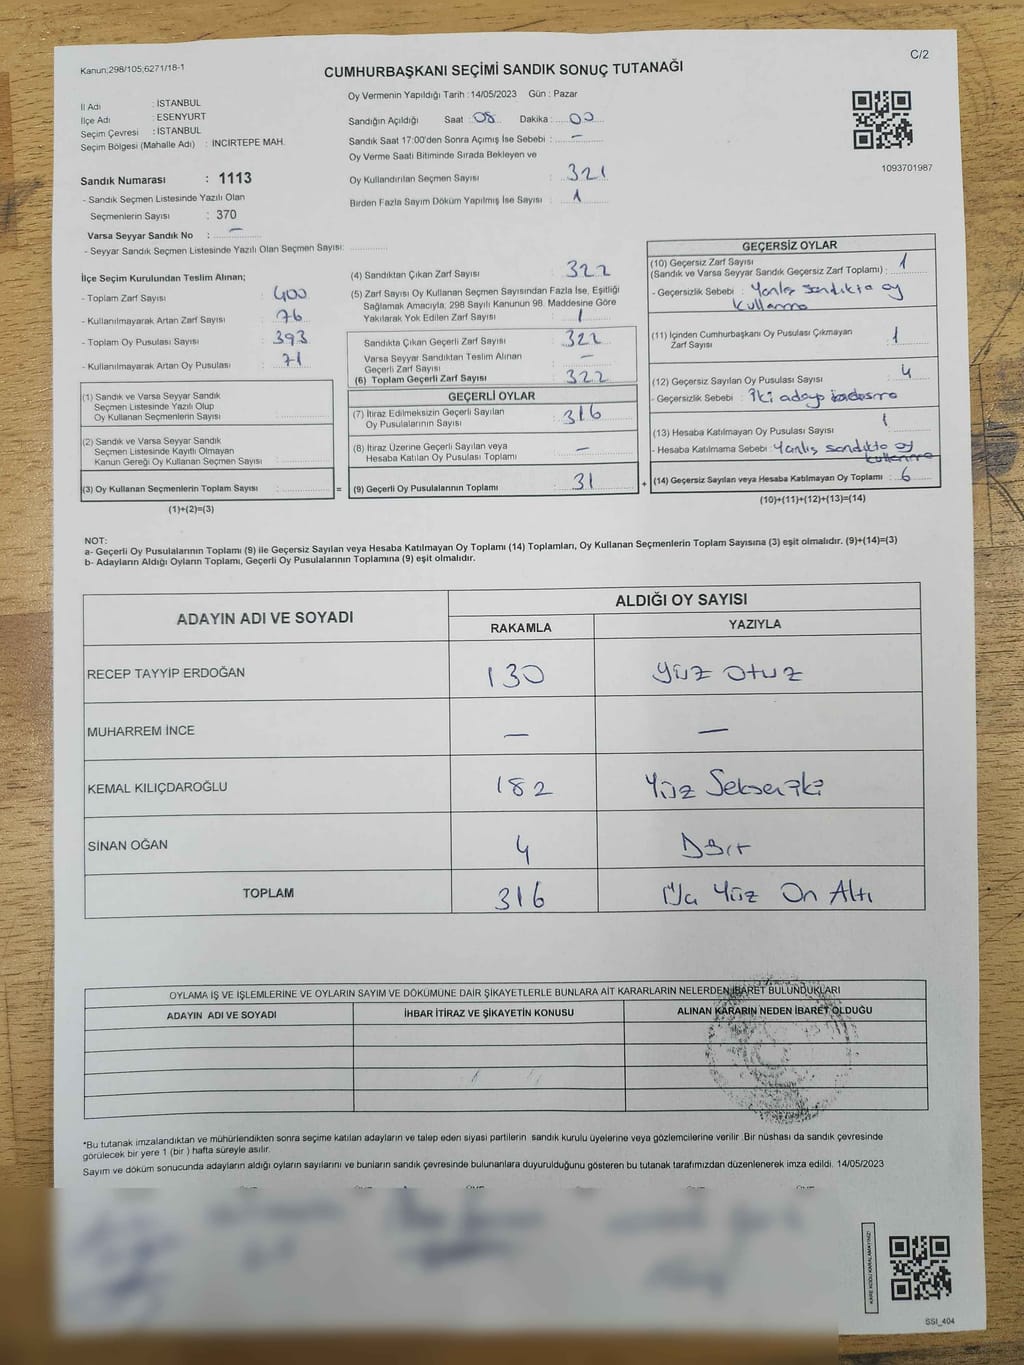 Kanun;298/105;6271/18-1
C/2
CUMHURBAŞKANI SEÇİMİ SANDIK SONUÇ TUTANAĞI
İl Adı : İSTANBUL
İlçe Adı : ESENYURT
Seçim Çevresi : İSTANBUL
Seçim Bölgesi (Mahalle Adı) : İNCİRTEPE MAH.
Oy Vermenin Yapıldığı Tarih : 14/05/2023 Gün : Pazar
Sandığın Açıldığı Saat : 08 Dakika : 00
Sandık Saat 17:00'den Sonra Açımış İse Sebebi : —
Oy Verme Saati Bitiminde Sırada Bekleyen ve
Oy Kullandırılan Seçmen Sayısı : 321
Birden Fazla Sayım Döküm Yapılmış İse Sayısı : 1
1093701987
Sandık Numarası : 1113
- Sandık Seçmen Listesinde Yazılı Olan
Seçmenlerin Sayısı : 370
Varsa Seyyar Sandık No : —
- Seyyar Sandık Seçmen Listesinde Yazılı Olan Seçmen Sayısı:
İlçe Seçim Kurulundan Teslim Alınan;
- Toplam Zarf Sayısı : 400
- Kullanılmayarak Artan Zarf Sayısı : 76
- Toplam Oy Pusulası Sayısı : 393
- Kullanılmayarak Artan Oy Pusulası : 71
(1) Sandık ve Varsa Seyyar Sandık
Seçmen Listesinde Yazılı Olup
Oy Kullanan Seçmenlerin Sayısı :
(2) Sandık ve Varsa Seyyar Sandık
Seçmen Listesinde Kayıtlı Olmayan
Kanun Gereği Oy Kullanan Seçmen Sayısı :
(3) Oy Kullanan Seçmenlerin Toplam Sayısı :
(1)+(2)=(3)
(4) Sandıktan Çıkan Zarf Sayısı : 322
(5) Zarf Sayısı Oy Kullanan Seçmen Sayısından Fazla İse, Eşitliği
Sağlamak Amacıyla; 298 Sayılı Kanunun 98. Maddesine Göre
Yakılarak Yok Edilen Zarf Sayısı : 1
Sandıkta Çıkan Geçerli Zarf Sayısı : 322
Varsa Seyyar Sandıktan Teslim Alınan
Geçerli Zarf Sayısı : —
(6) Toplam Geçerli Zarf Sayısı : 322
GEÇERLİ OYLAR
(7) İtiraz Edilmeksizin Geçerli Sayılan
Oy Pusulalarının Sayısı : 316
(8) İtiraz Üzerine Geçerli Sayılan veya
Hesaba Katılan Oy Pusulası Toplamı : —
= (9) Geçerli Oy Pusulalarının Toplamı : 31
GEÇERSİZ OYLAR
(10) Geçersiz Zarf Sayısı
(Sandık ve Varsa Seyyar Sandık Geçersiz Zarf Toplamı) : 1
- Geçersizlik Sebebi : Yanlış sandıkta oy
kullanma
(11) İçinden Cumhurbaşkanı Oy Pusulası Çıkmayan
Zarf Sayısı : 1
(12) Geçersiz Sayılan Oy Pusulası Sayısı : 4
- Geçersizlik Sebebi : İki adaya basma
(13) Hesaba Katılmayan Oy Pusulası Sayısı : 1
- Hesaba Katılmama Sebebi : Yanlış sandıkta oy
kullanma
+ (14) Geçersiz Sayılan veya Hesaba Katılmayan Oy Toplamı : 6
(10)+(11)+(12)+(13)=(14)
NOT:
a- Geçerli Oy Pusulalarının Toplamı (9) ile Geçersiz Sayılan veya Hesaba Katılmayan Oy Toplamı (14) Toplamları, Oy Kullanan Seçmenlerin Toplam Sayısına (3) eşit olmalıdır. (9)+(14)=(3)
b- Adayların Aldığı Oyların Toplamı, Geçerli Oy Pusulalarının Toplamına (9) eşit olmalıdır.
ADAYIN ADI VE SOYADI
ALDIĞI OY SAYISI
RAKAMLA YAZIYLA
RECEP TAYYİP ERDOĞAN 130 Yüz Otuz
MUHARREM İNCE — —
KEMAL KILIÇDAROĞLU 182 Yüz Seksen iki
SİNAN OĞAN 4 Dört
TOPLAM 316 Üç Yüz On Altı
OYLAMA İŞ VE İŞLEMLERİNE VE OYLARIN SAYIM VE DÖKÜMÜNE DAİR ŞİKAYETLERLE BUNLARA AİT KARARLARIN NELERDEN İBARET BULUNDUKLARI
ADAYIN ADI VE SOYADI İHBAR İTİRAZ VE ŞİKAYETİN KONUSU ALINAN KARARIN NEDEN İBARET OLDUĞU
*Bu tutanak imzalandıktan ve mühürlendikten sonra seçime katılan adayların ve talep eden siyasi partilerin sandık kurulu üyelerine veya gözlemcilerine verilir .Bir nüshası da sandık çevresinde
görülecek bir yere 1 (bir ) hafta süreyle asılır.
Sayım ve döküm sonucunda adayların aldığı oyların sayılarını ve bunların sandık çevresinde bulunanlara duyurulduğunu gösteren bu tutanak tarafımızdan düzenlenerek imza edildi. 14/05/2023
KARE KODU KARALAMAYINIZ!
SSI_404